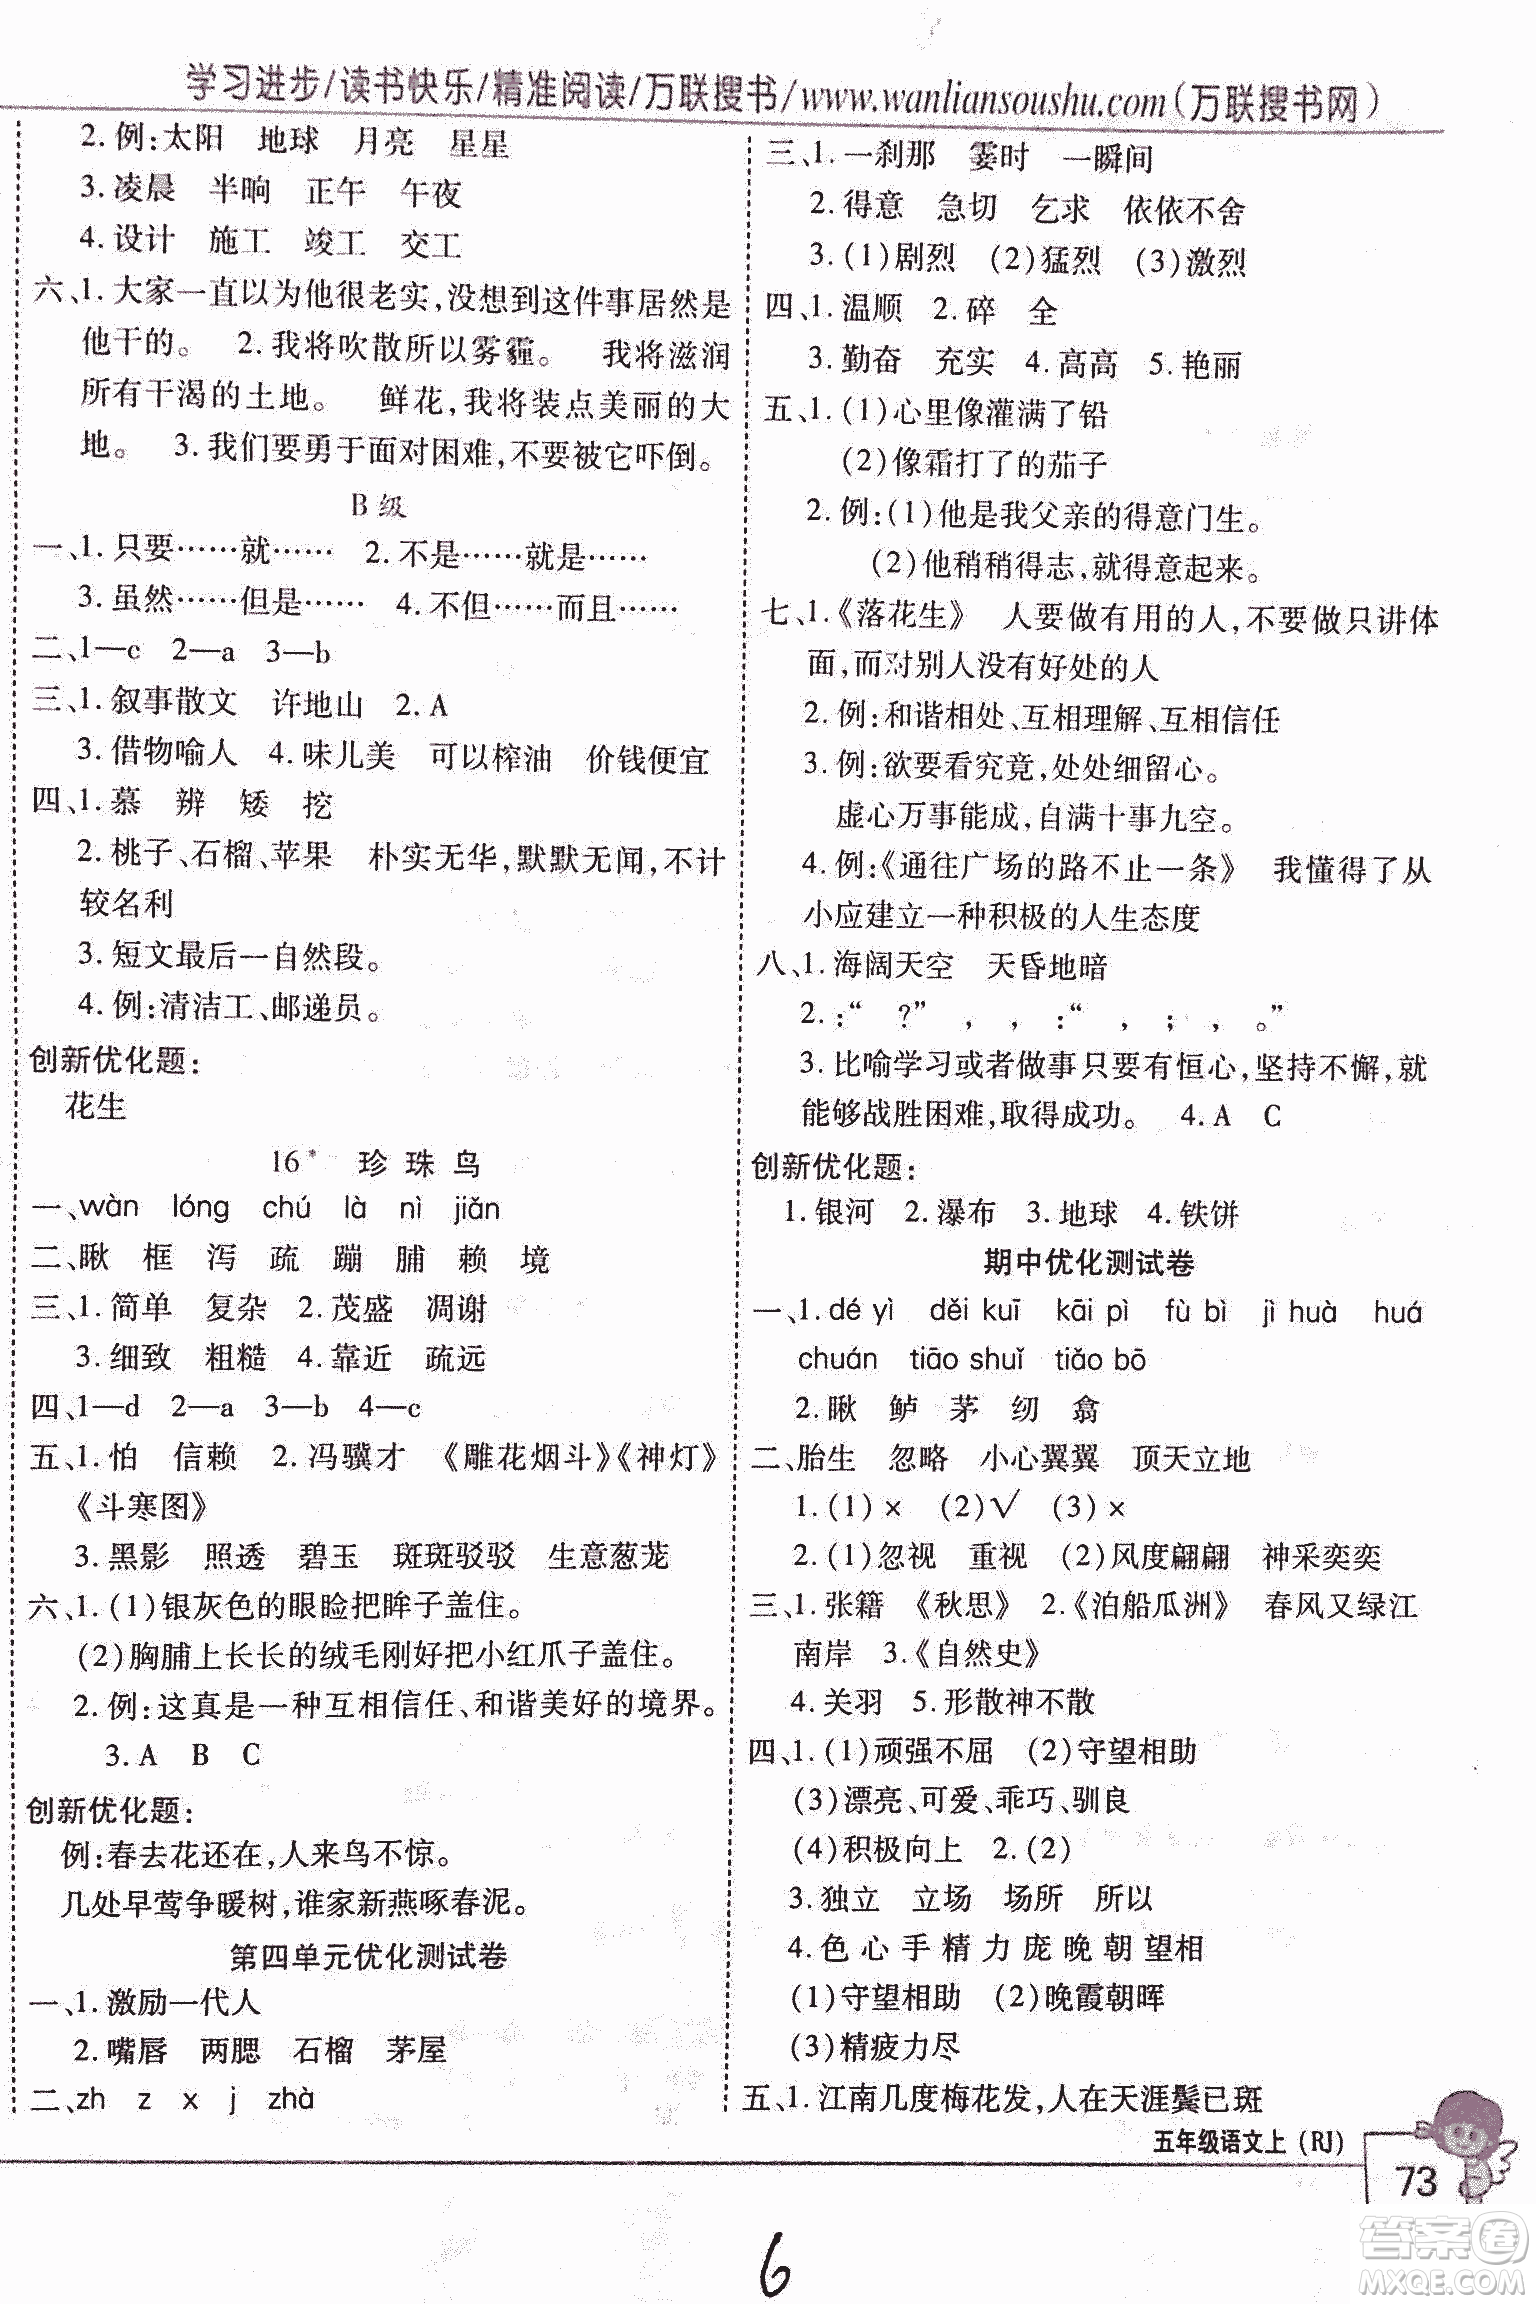 学习进步/读书快乐/精准阅读/万联搜书/www.wanliansoushu.com(万联搜书网)
2. 例:太阳 地球 月亮 星星
3. 凌晨 半晌 正午 午夜
4. 设计 施工 竣工 交工
六、1. 大家一直以为他很老实,没想到这件事居然是
他干的。 2. 我将吹散所以雾霾。 我将滋润
所有干渴的土地。 鲜花,我将装点美丽的大
地。 3. 我们要勇于面对困难,不要被它吓倒。
B 级
一、1. 只要……就…… 2. 不是……就是……
3. 虽然……但是…… 4. 不但……而且……
二、1—c 2—a 3—b
三、1. 叙事散文 许地山 2. A
3. 借物喻人 4. 味儿美 可以榨油 价钱便宜
四、1. 慕 辨 矮 挖
2. 桃子、石榴、苹果 朴实无华,默默无闻,不计
较名利
3. 短文最后一自然段。
4. 例:清洁工、邮递员。
创新优化题:
花生
16* 珍珠鸟
一、wàn lóng chú là nì jiǎn
二、瞅 框 泻 疏 蹦 脯 赖 境
三、1. 简单 复杂 2. 茂盛 凋谢
3. 细致 粗糙 4. 靠近 疏远
四、1—d 2—a 3—b 4—c
五、1. 怕 信赖 2. 冯骥才 《雕花烟斗》《神灯》
《斗寒图》
3. 黑影 照透 碧玉 斑斑驳驳 生意葱茏
六、1. (1)银灰色的眼睑把眸子盖住。
(2)胸脯上长长的绒毛刚好把小红爪子盖住。
2. 例:这真是一种互相信任、和谐美好的境界。
3. A B C
创新优化题:
例:春去花还在,人来鸟不惊。
几处早莺争暖树,谁家新燕啄春泥。
第四单元优化测试卷
一、1. 激励一代人
2. 嘴唇 两腮 石榴 茅屋
二、zh z x j zhà
三、1. 一刹那 霎时 一瞬间
2. 得意 急切 乞求 依依不舍
3. (1)剧烈 (2)猛烈 (3)激烈
四、1. 温顺 2. 碎 全
3. 勤奋 充实 4. 高高 5. 艳丽
五、1. (1)心里像灌满了铅
(2)像霜打了的茄子
2. 例:(1)他是我父亲的得意门生。
(2)他稍稍得志,就得意起来。
七、1.《落花生》 人要做有用的人,不要做只讲体
面,而对别人没有好处的人
2. 例:和谐相处、互相理解、互相信任
3. 例:欲要看究竟,处处细留心。
虚心万事能成,自满十事九空。
4. 例:《通往广场的路不止一条》 我懂得了从
小应建立一种积极的人生态度
八、1. 海阔天空 天昏地暗
2. :“ ?” , , :“ , ; , 。”
3. 比喻学习或者做事只要有恒心,坚持不懈,就
能够战胜困难,取得成功。 4. A C
创新优化题:
1. 银河 2. 瀑布 3. 地球 4. 铁饼
期中优化测试卷
一、1. dé yì děi kuī kāi pì fù bì jì huà huá
chuán tiāo shuǐ tiǎo bō
2. 瞅 鲈 茅 纫 翕
二、胎生 忽略 小心翼翼 顶天立地
1. (1) × (2)√ (3) ×
2. (1)忽视 重视 (2)风度翩翩 神采奕奕
三、1. 张籍 《秋思》 2.《泊船瓜洲》 春风又绿江
南岸 3.《自然史》
4. 关羽 5. 形散神不散
四、1. (1)顽强不屈 (2)守望相助
(3)漂亮、可爱、乖巧、驯良
(4)积极向上 2. (2)
3. 独立 立场 场所 所以
4. 色 心 手 精 力 庞 晚 朝 望相
(1)守望相助 (2)晚霞朝晖
(3)精疲力尽
五、1. 江南几度梅花发,人在天涯鬓已斑
五年级语文上(RJ)
73
6
答案圈
MXQE.COM